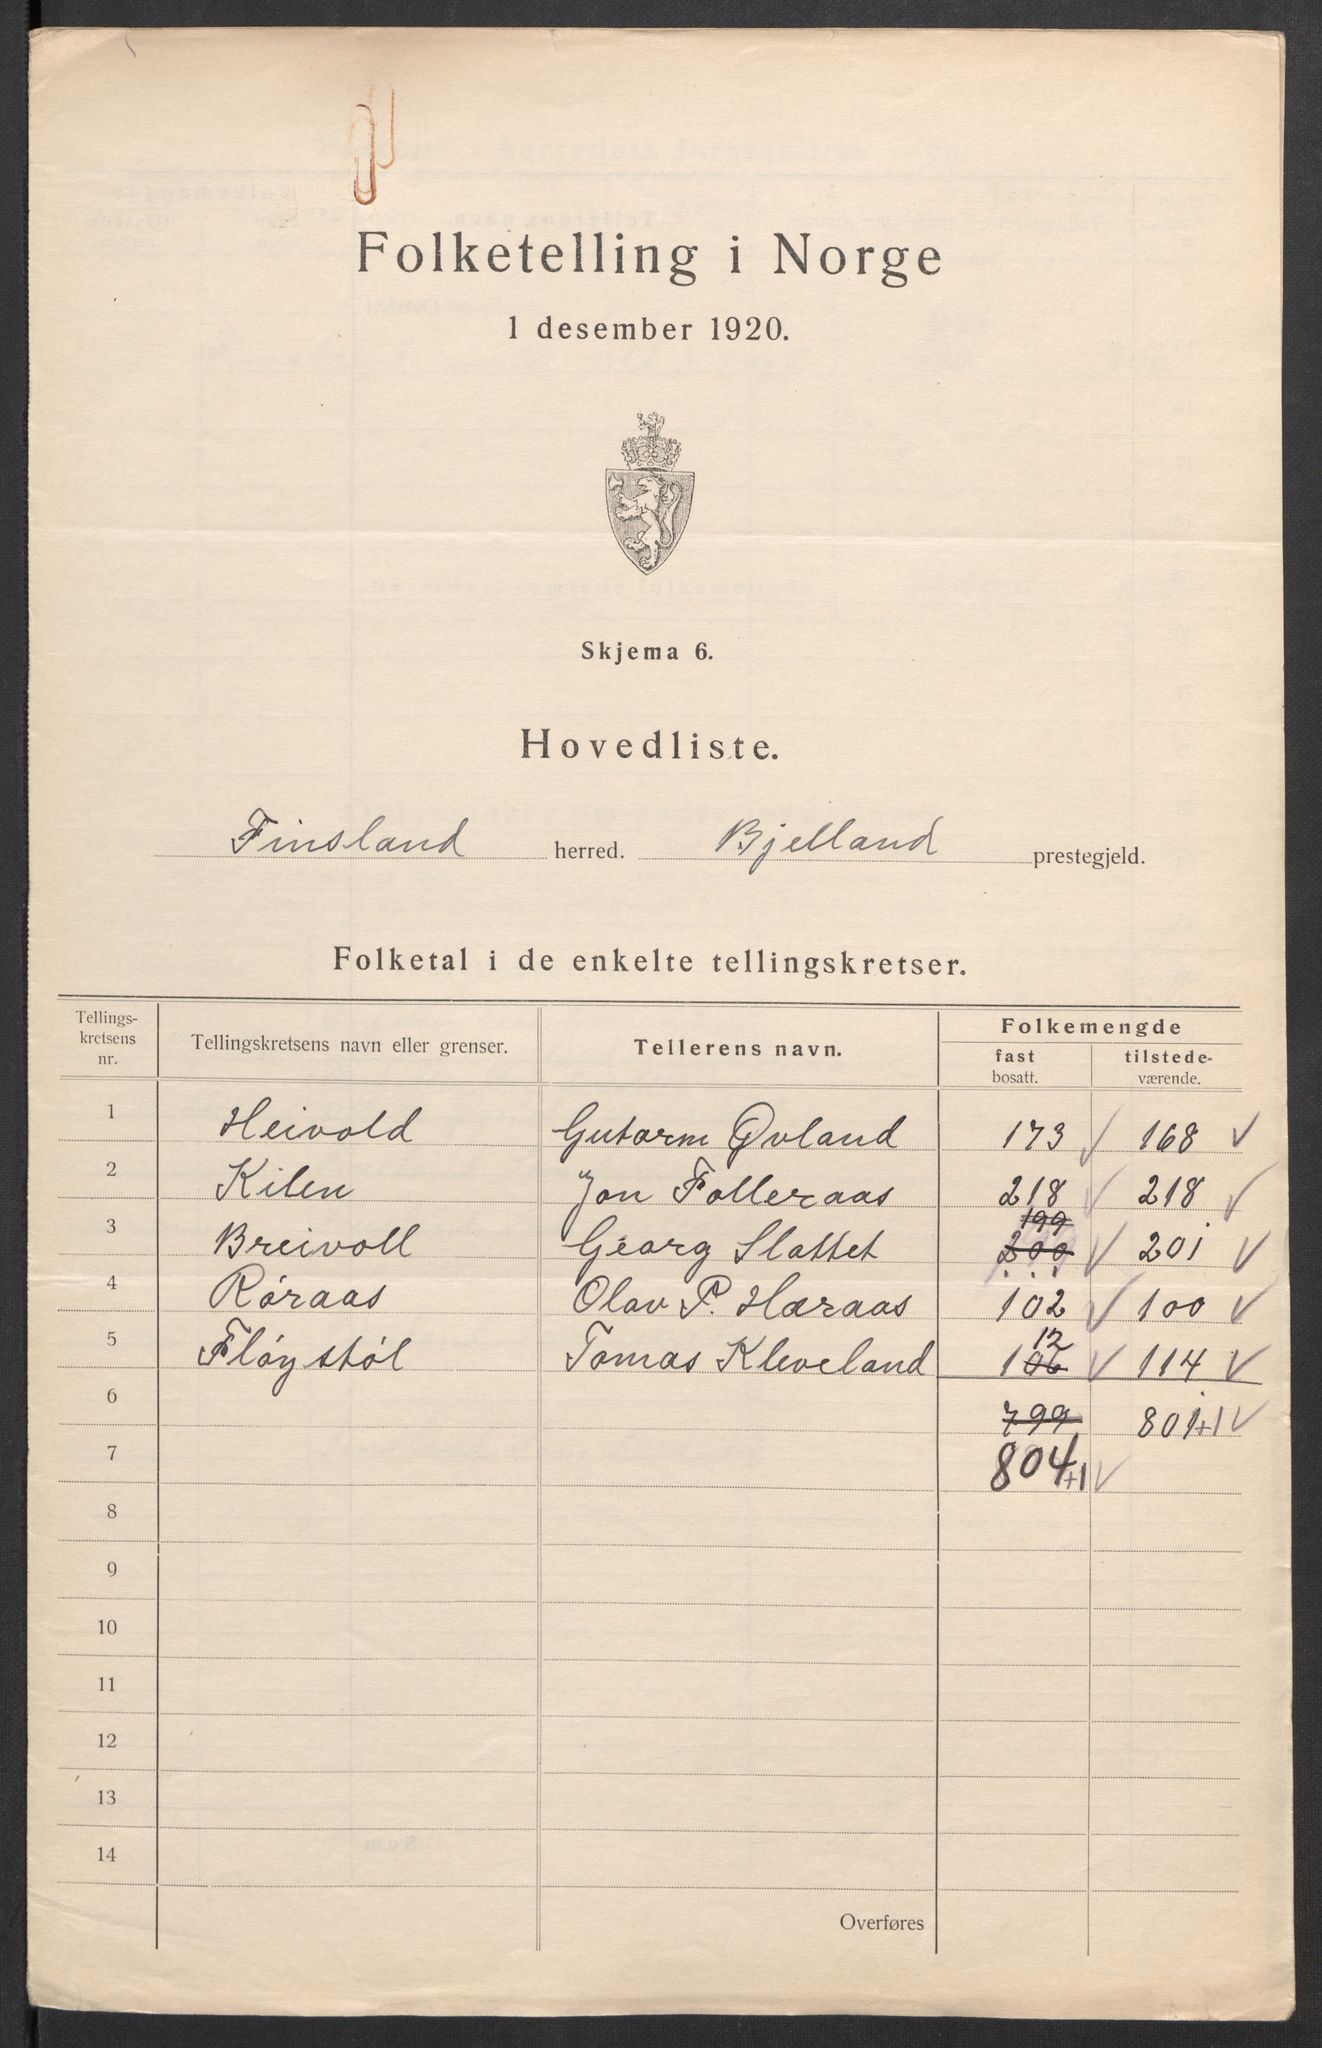 Folketelling i Norge
1 desember 1920.
Skjema 6.
Hovedliste.
Finsland herred. Bjelland prestegjeld.
Folketal i de enkelte tellingskretser.
Tellings-kretsens nr. Tellingskretsens navn eller grenser. Tellerens navn. Folkemengde
fast bosatt. tilstede-værende.
1 Heivold Gutorm Øvland 173 168
2 Kilen Jon Folleraas 218 218
199
3 Breivoll Georg Slattet 200 201
4 Røraas Olav P. Hæraas 102 100
12
5 Fløystøl Tomas Kleveland 106 114
6 799 801+1
7 804+1
8
9
10
11
12
13
14
Overføres